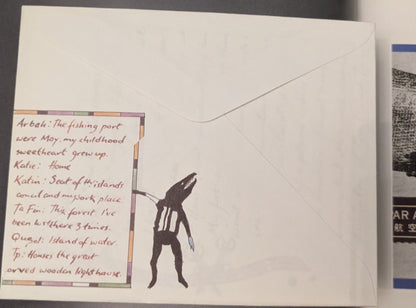 Arbah: The fishing port
were Moy, my childhood
sweetheart grew up.
Katie: Home
Katin: Seat of the islands
council and my work place.
Ta Fin: The forest. I've
been lost there 3 twice.
Quepol: Island of water.
Tp: Houses the great
carved wooden lighthouse.
AR A
航空